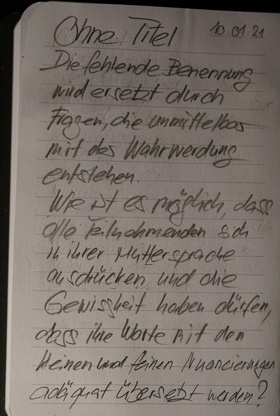 Ohne Titel 10 01 21
Die fehlende Benennung
wird ersetzt durch
Fragen, die unmittelbar
mit der Wahrwerdung
entstehen.
Wie ist es möglich, dass
alle Teilnehmenden sich
in ihrer Muttersprache
ausdrücken und die
Gewissheit haben dürfen,
dass ihre Worte mit den
kleinen und feinen Nuancierungen
adäquat übersetzt werden?